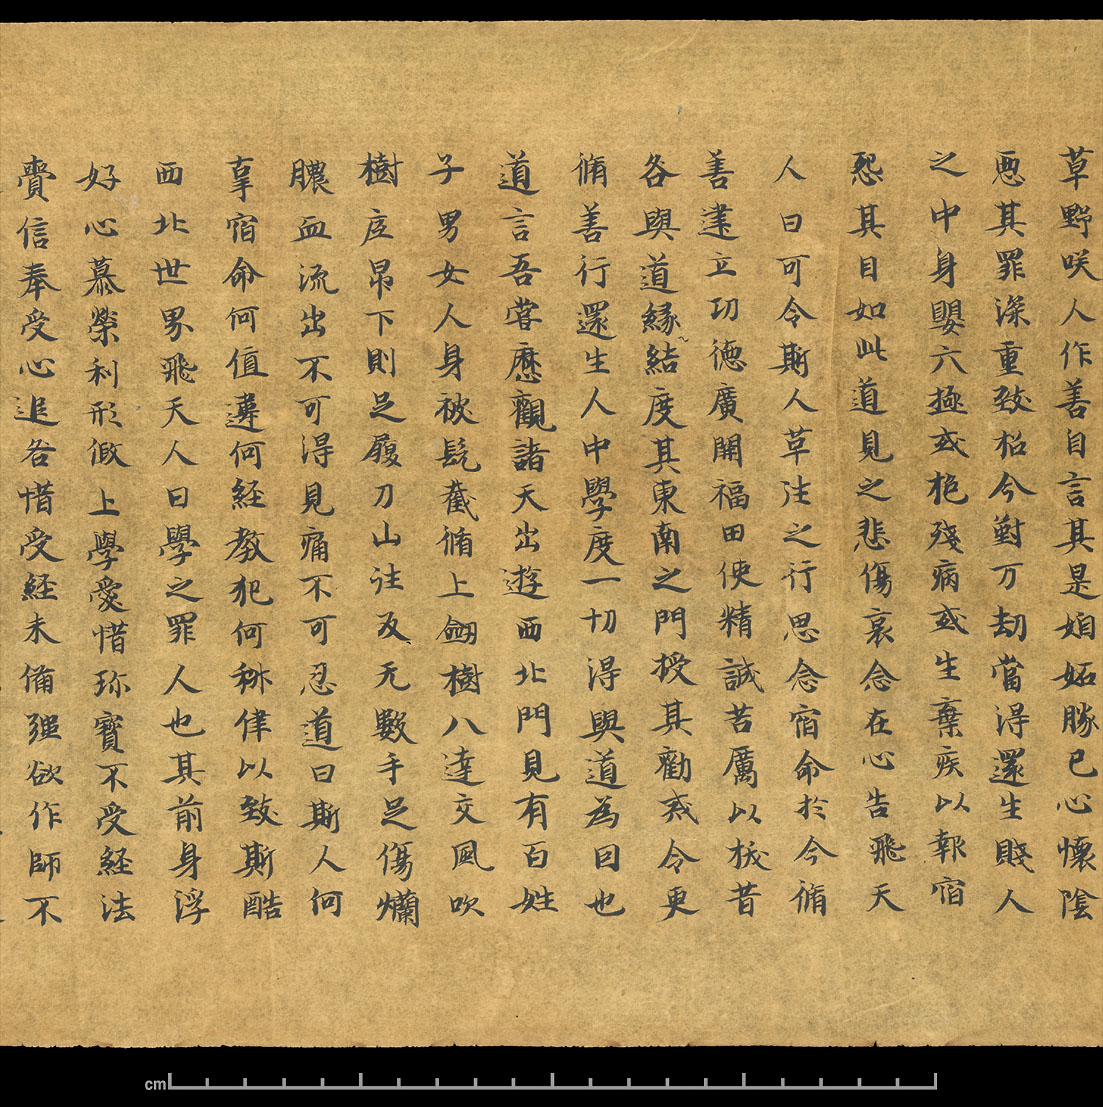 草野咲人作善自言其是姮妬勝已心懷陰
惡其罪深重致招今對万劫當得還生賤人
之中身嬰六極或枹殘病或生棄疾以報宿
𢙣其目如此道見之悲傷哀念在心告飛天
人曰可令斯人草注之行思念宿命於今脩
善建立功德廣開福田使精誠苦厲以拔昔
各與道緣結度其東南之門授其勸戒令更
脩善行還生人中學度一切得與道為因也
道言吾嘗歷觀諸天出遊西北門見有百姓
子男女人身被髡截脩上劔樹八達交風吹
樹庢昂下則足履刀山往反无數手足傷爛
膿血流出不可得見痛不可忍道曰斯人何
辜宿命何值遵何經教犯何科律以致斯酷
西北世界飛天人曰學之罪人也其前身浮
好心慕榮利形倣上學愛惜珎寶不受經法
賷信奉受心追咎惜受經未備强欲作師不